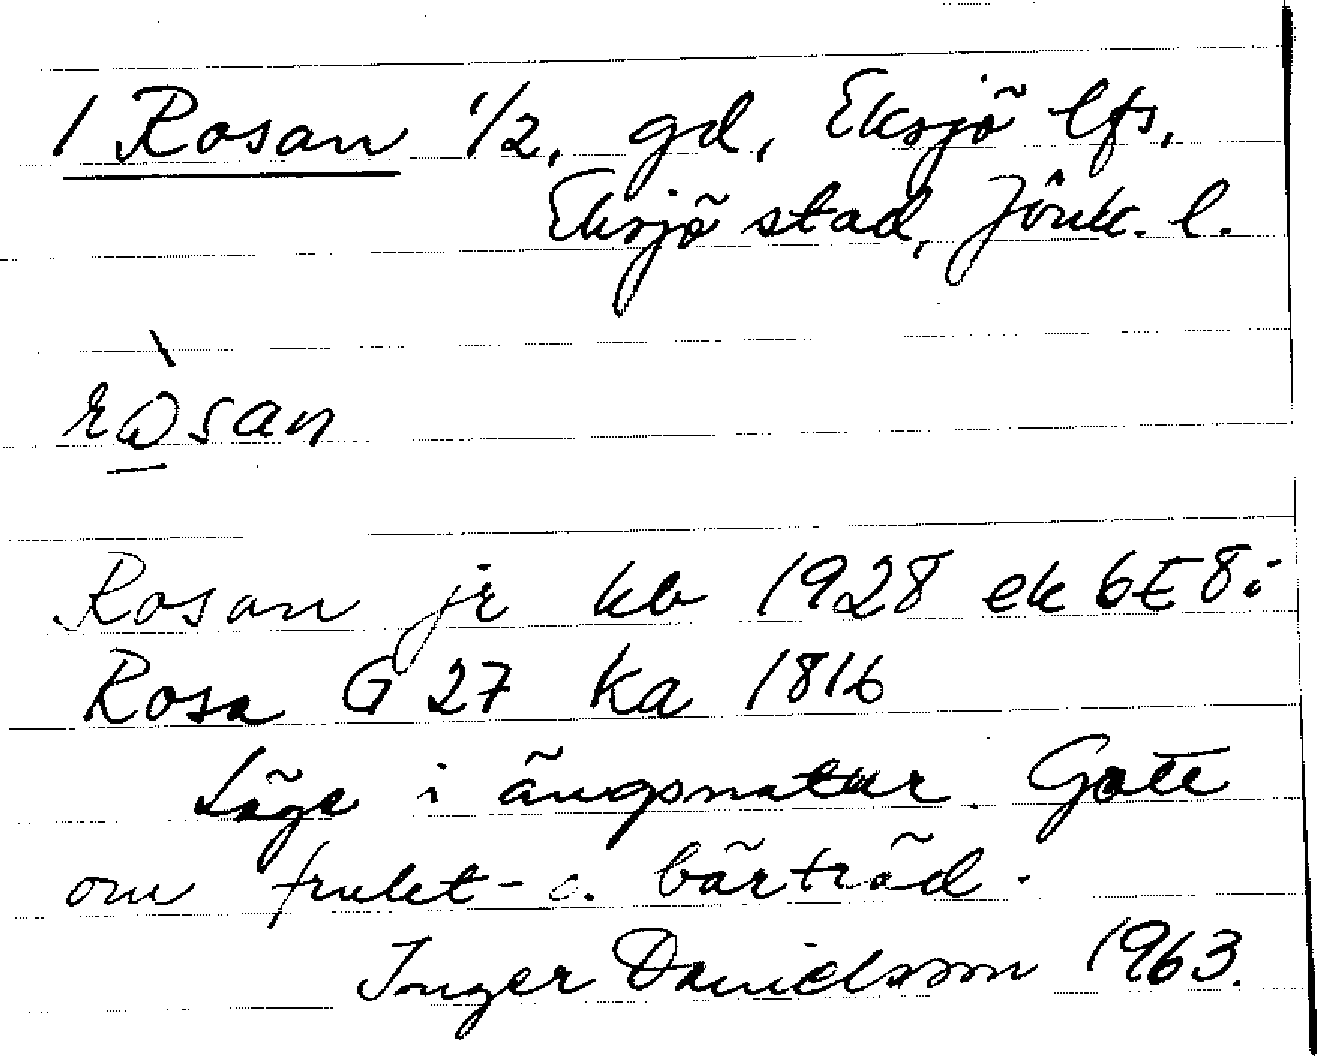 1 Rosan 1/2, gd, Eksjö lfs,
Eksjö stad, Jönk. l.
ròsan
Rosan jr kb 1928 ek 6E8i
Rosa G 27 ka 1816
Läge i ängsnatur. Gott
om frukt- o. bärträd.
Inger Danielsson 1963.